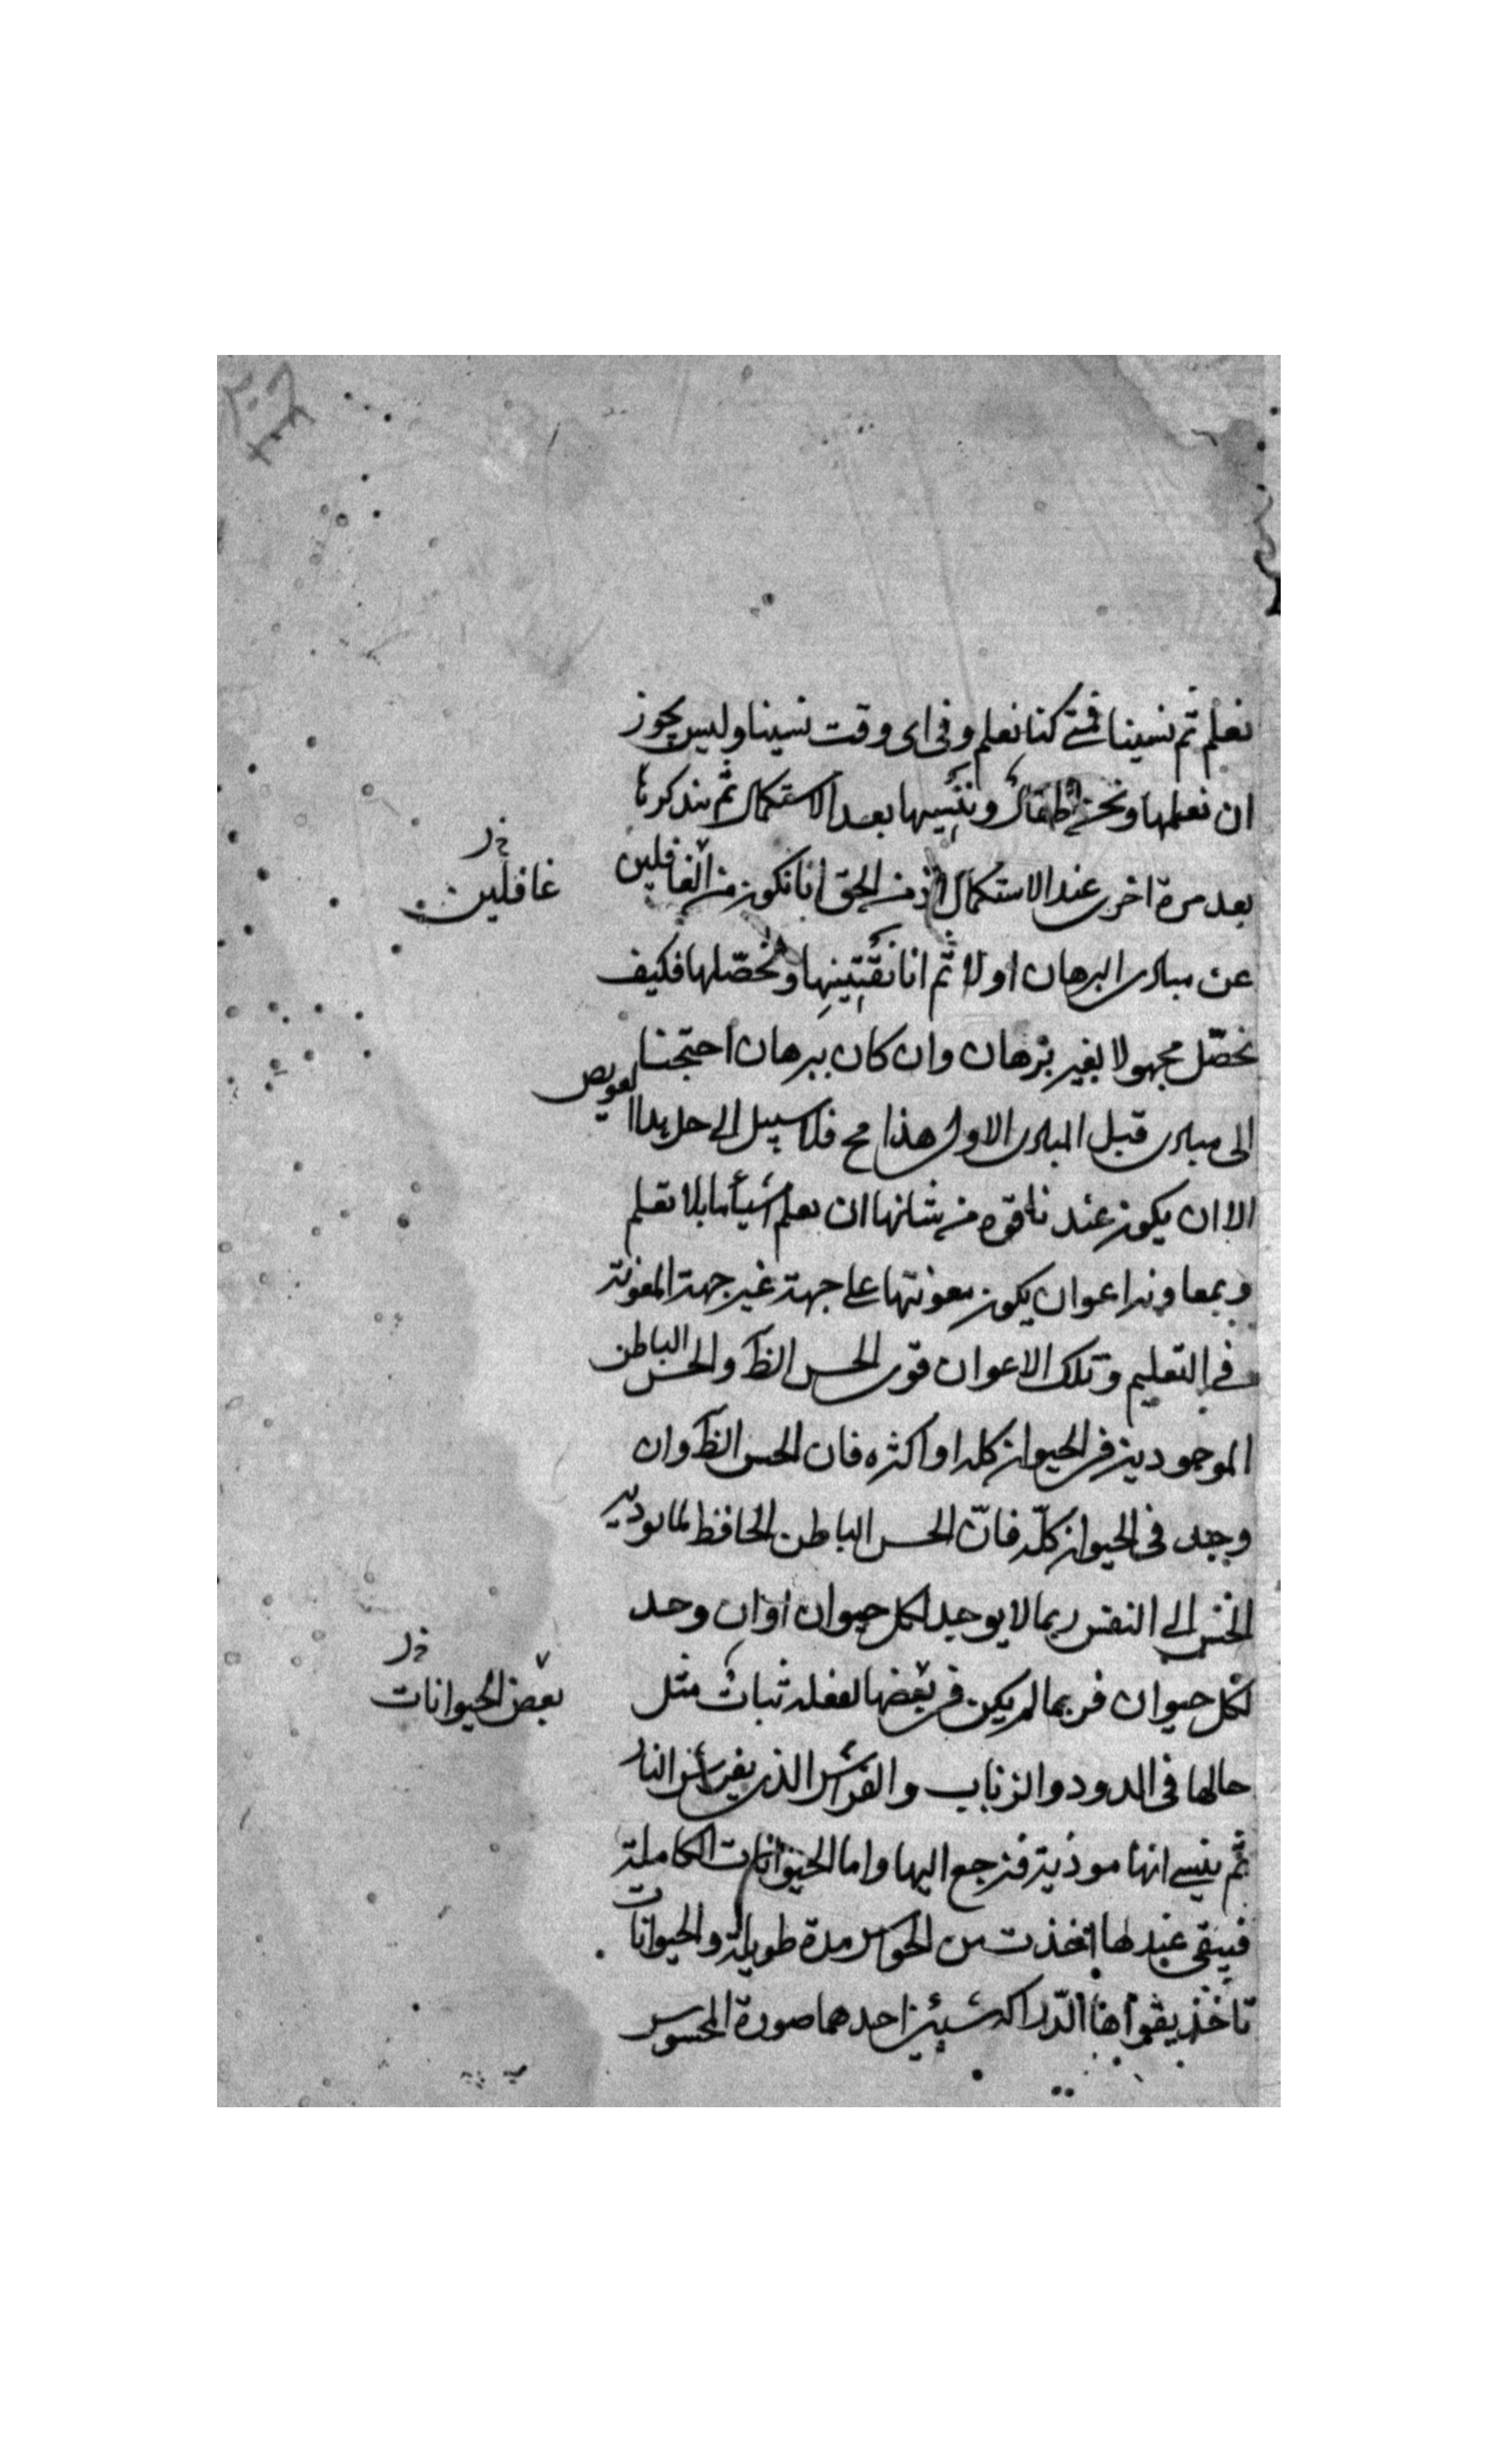 نعلم ثم نسينا فمتى كنا نعلم وفى اى وقت نسينا وليس يجوز
ان نعلمها ونحن اطفال وننسيها بعد الاستكمال ثم نتذكرها
بعد مرة اخرى عند الاستكمال اذ من الحق انا نكون من الغافلين
غافلين
عن مبادى البرهان اولا ثم انا نقتنيها ونحصّلها فكيف
نحصّل مجهولا بغير برهان وان كان ببرهان احتجنا
الى مبادى قبل المبادى الاول هذا مح فلا سبيل الى حل هذا العويص
الا ان يكون عندنا قوه من شانها ان تعلم اشيأ ما بلا تعلم
وبمعاونه اعوان يكون معونتها على جهة غير جهة المعونة
فى التعليم وتلك الاعوان قوى الحس الظ والحس الباطن
الموجودين فى الحيوان كله او اكثره فان الحس الظ وان
وجد فى الحيوان كلّه فانّ الحس الباطن الحافظ لما يوديه
الحس الى النفس ربما لا يوجد لكل حيوان او ان وجد
لكل حيوان فربما لم يكن فى بعضها لفعله ثبات مثل
بعض الحيوانات
حالها فى الدود والزباب والفراش الذى يفر من النار
ثم ينسى انها موذية فترجع اليها واما الحيوانات الكاملة
فيبقى عندها اتخذت من الحواس مدة طويلة والحيوانات
تاخذ بقواها الدّراكه شيئين احدهما صورة المحسوس